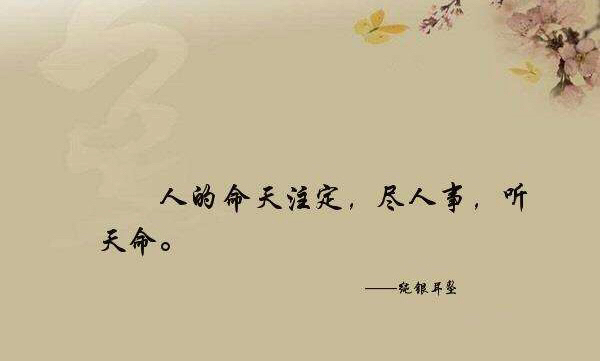 人的命天注定，尽人事，听
天命。
——绽银耳坠